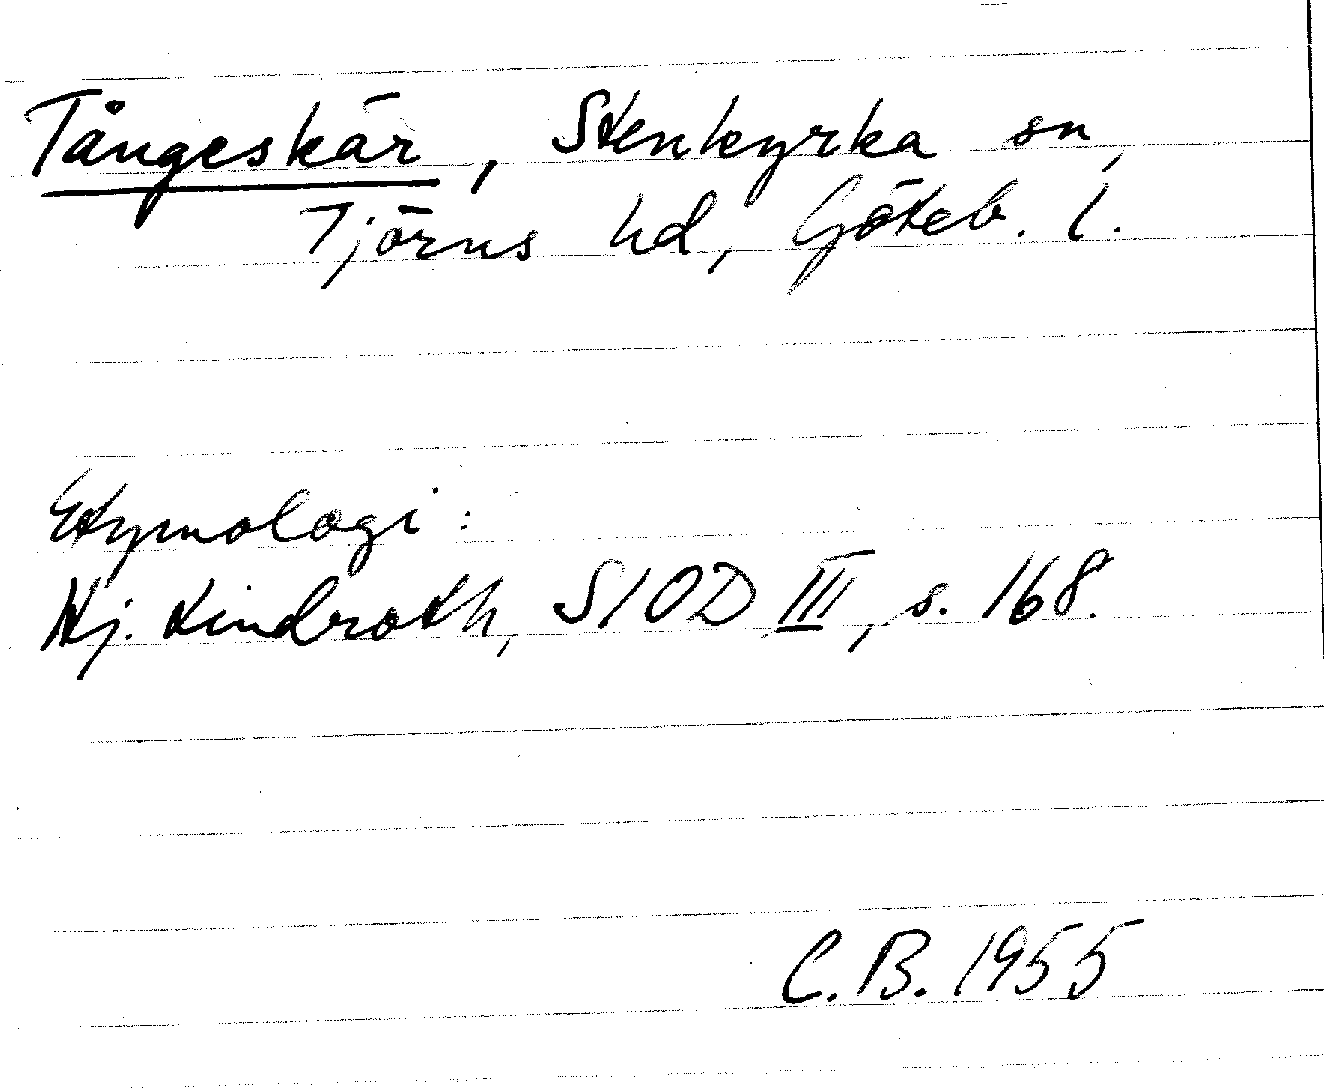 Tångeskär, Stenkyrka sn,
Tjörns hd, Göteb. l.
Etymologi:
Hj. Lindroth, SIOD III, s. 168.
C.B. 1955